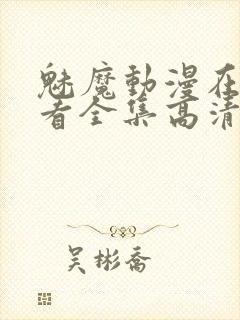 魅魔動漫在
看全集高清
吴彬喬